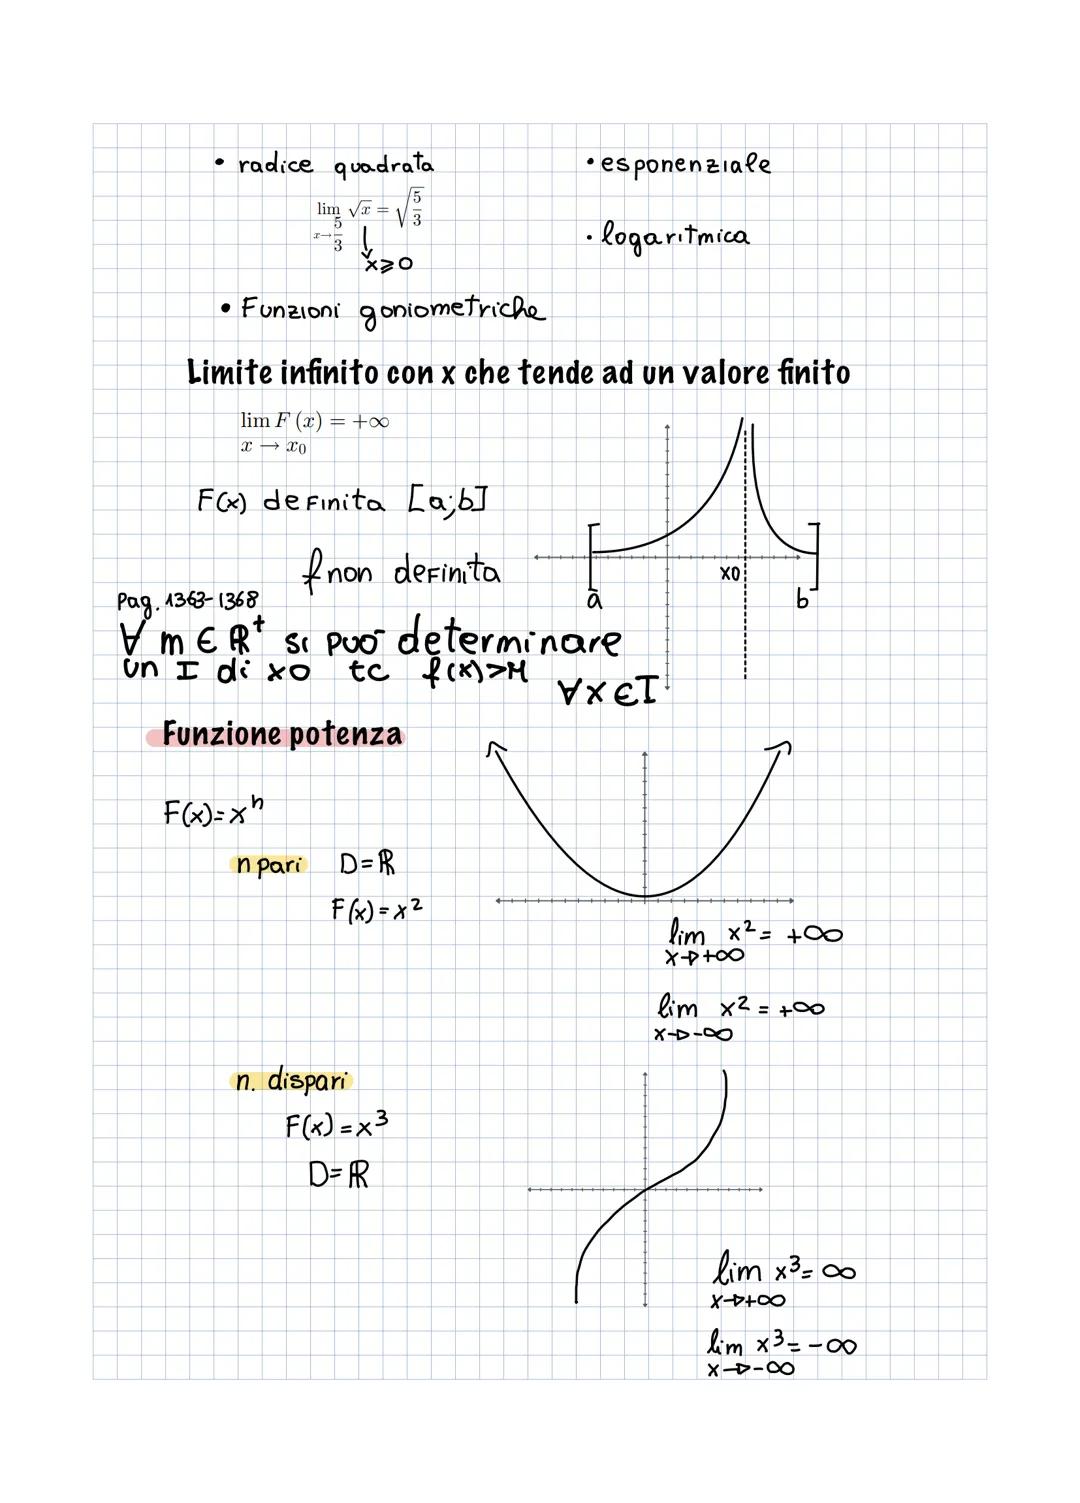 • radice quadrata
lim √x = √5/3
x→5/3
x⩾0
• esponenziale
• logaritmica
• Funzioni goniometriche
Limite infinito con x che tende ad un valore finito
lim F (x) = +∞
x → x₀
F(x) definita [a;b]
f non definita
x0
a
b
Pag. 1363-1368
∀ m ∈ ℝ⁺ si può determinare
un I di x0 tc f(x)>M
∀x ∈ I
Funzione potenza
F(x)=xⁿ
n pari D=ℝ
F(x)=x²
lim x² = +∞
x→+∞
lim x² = +∞
x→-∞
n. dispari
F(x)=x³
D=ℝ
lim x³= ∞
x→+∞
lim x³= -∞
x→-∞